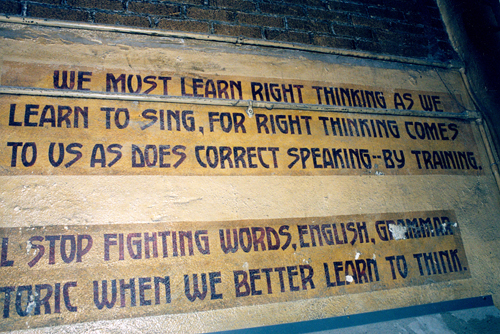 WE MUST LEARN RIGHT THINKING AS WE
LEARN TO SING, FOR RIGHT THINKING COMES
TO US AS DOES CORRECT SPEAKING--BY TRAINING.
L STOP FIGHTING WORDS, ENGLISH, GRAMMAR
TORIC WHEN WE BETTER LEARN TO THINK.